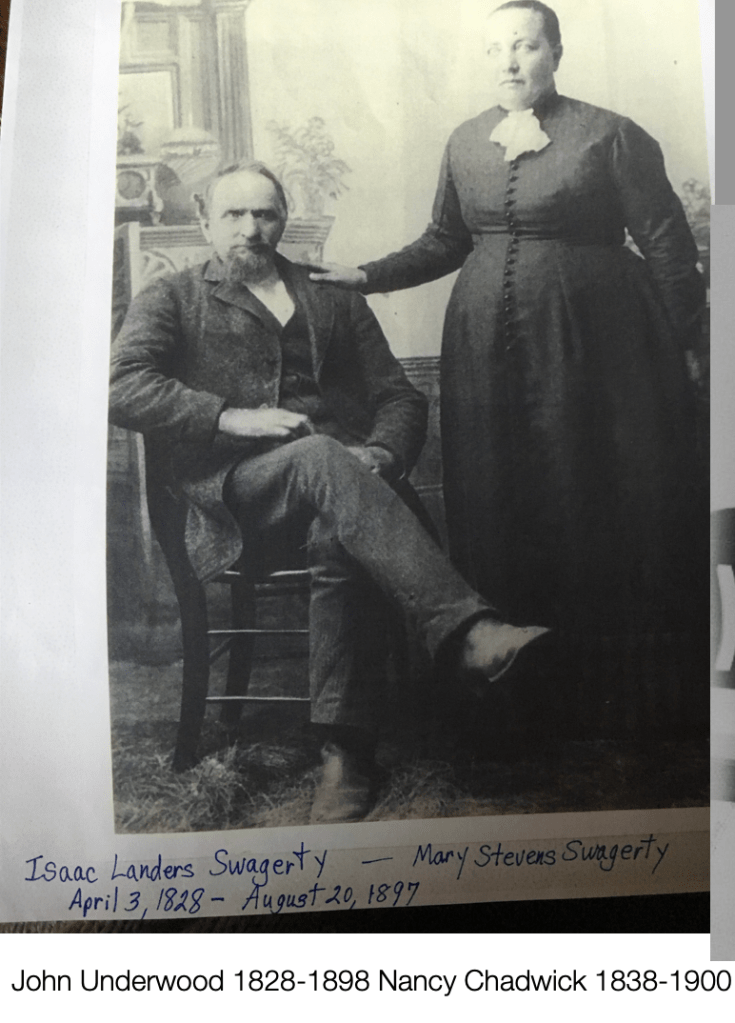 Isaac Landers Swagerty — Mary Stevens Swagerty
April 3, 1828 – August 20, 1897
John Underwood 1828-1898 Nancy Chadwick 1838-1900